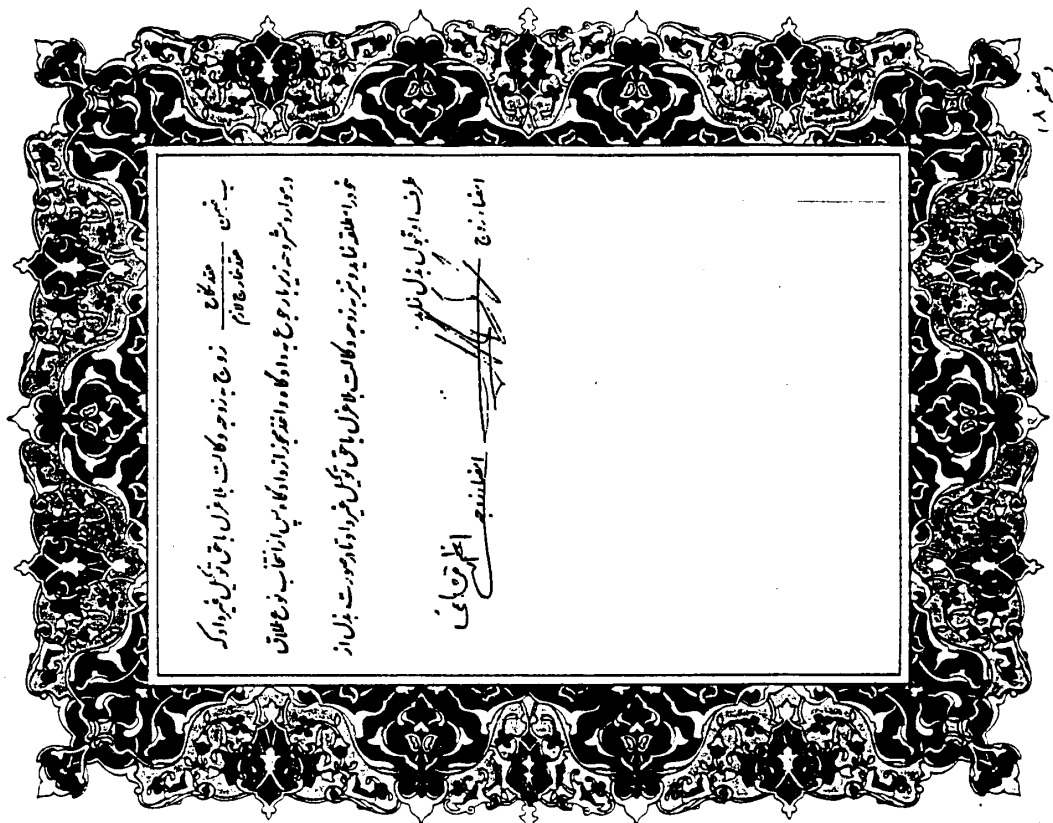 صفحه ۱۰
ب ـ ضمن عقد نکاح / عقد خارج لازم زوج به زوجه وکالت بلاعزل با حق توکیل غیر داد که
در موارد مشروحه زیر با رجوع به دادگاه و اخذ مجوز از دادگاه پس از انتخاب نوع طلاق
خود را مطلقه نماید و نیز به زوجه وکالت بلاعزل با حق توکیل غیر داد تا در صورت بذل از
طرف او قبول بذل نماید.
امضاء زوج
امضاء زوجه